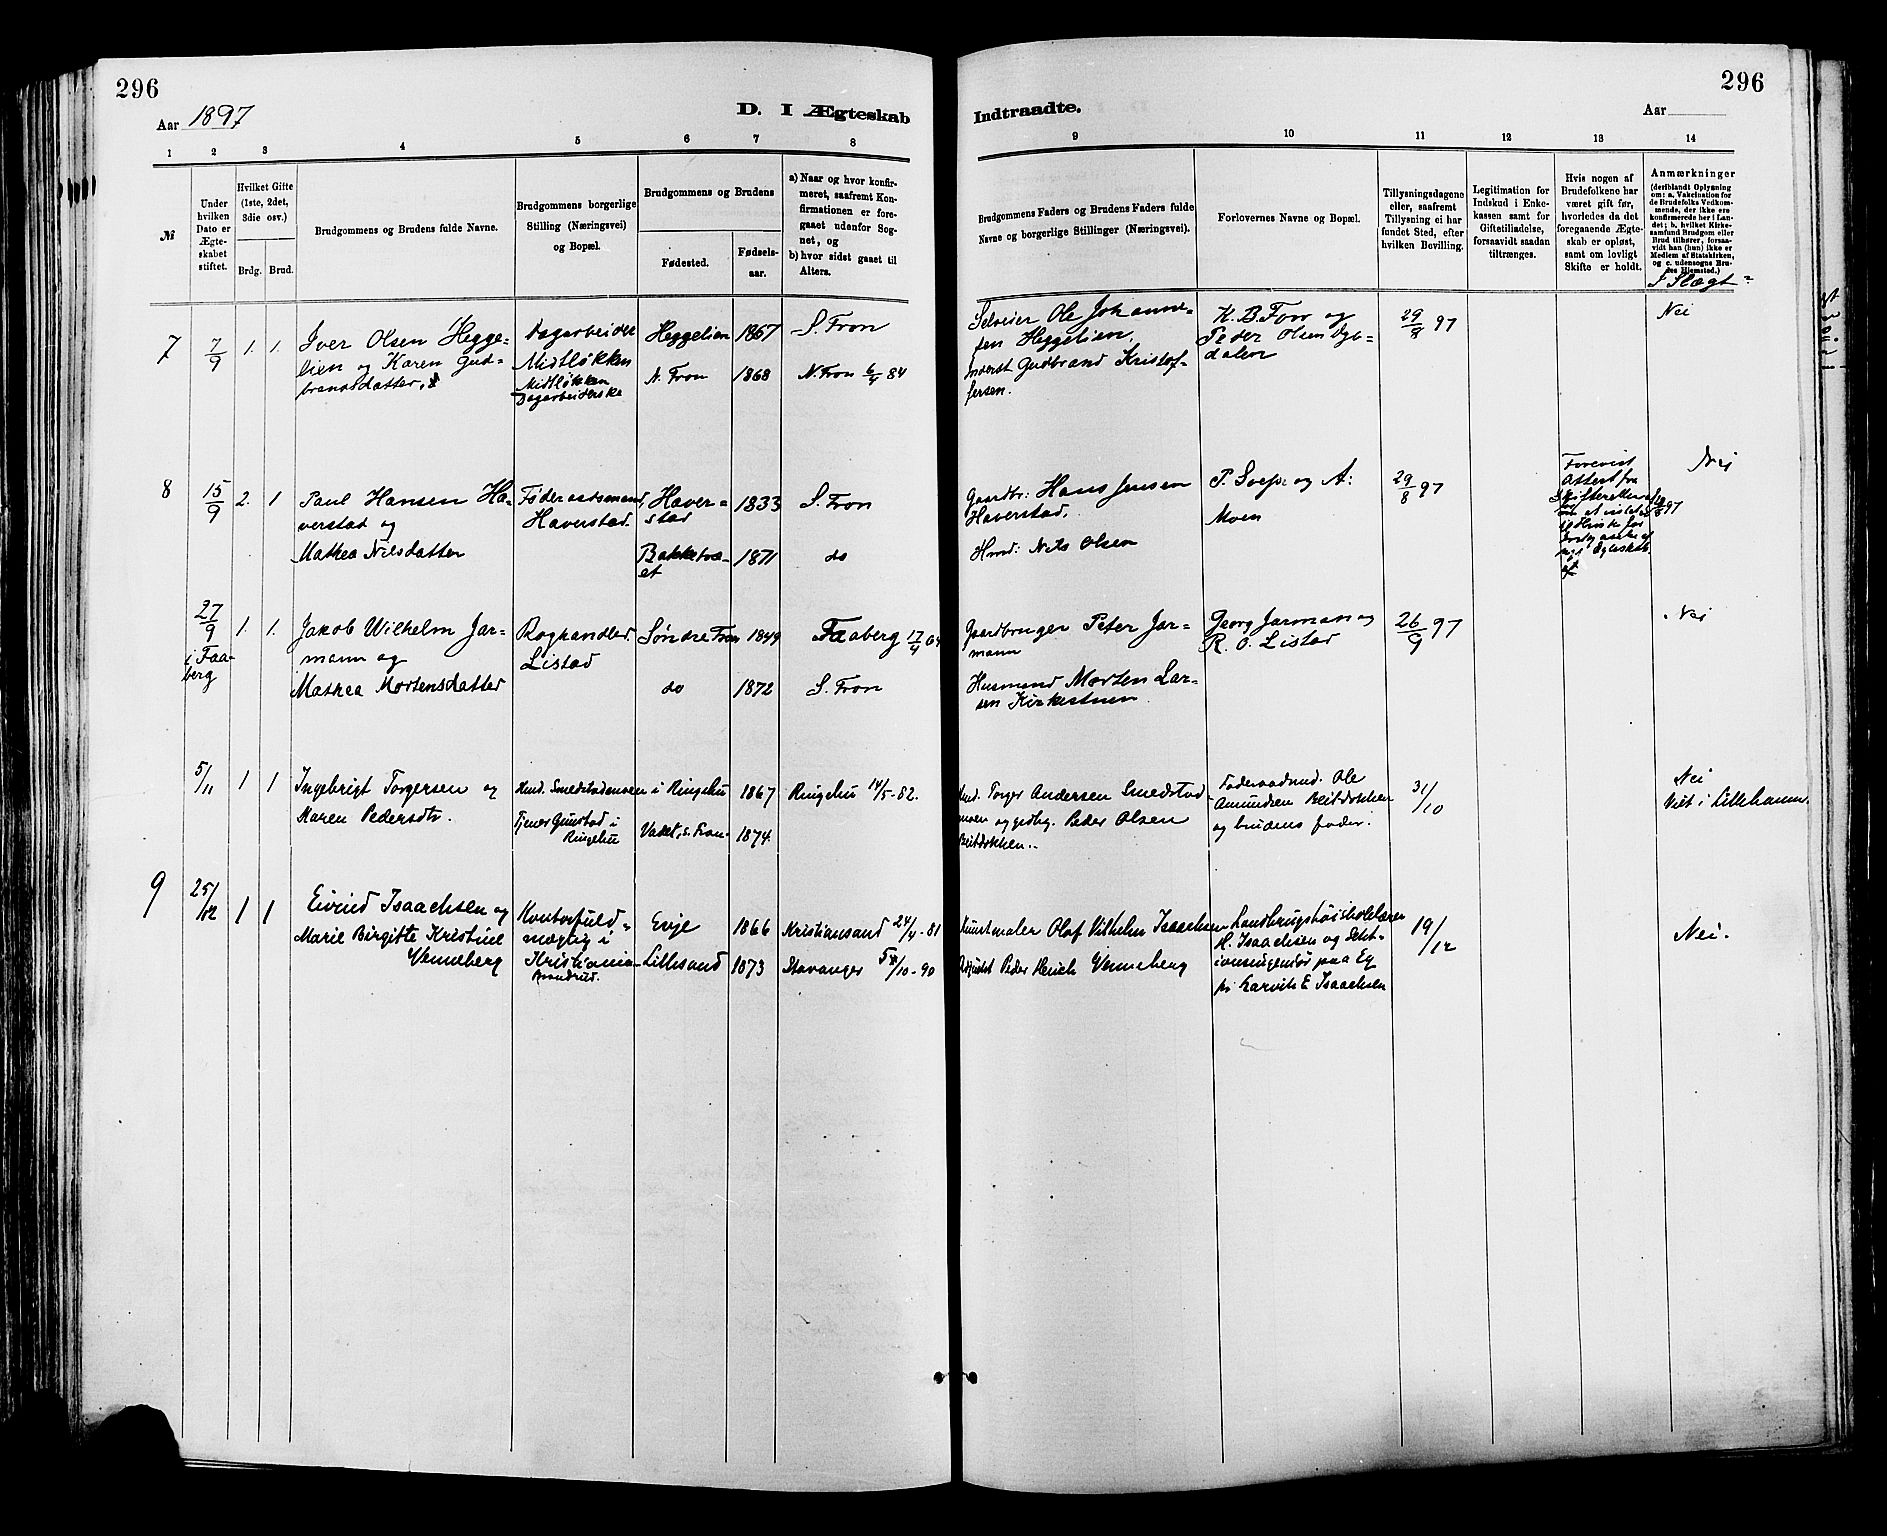 296
296
Aar 1897
D. I Ægteskab
Indtraadte.
Aar
1 2 3 4 5 6 7 8
9 10 11 12 13 14
№
Under hvilken Dato er Ægte-skabet stiftet.
Hvilket Gifte (1ste, 2det, 3die osv.)
Brdg. Brud.
Brudgommens og Brudens fulde Navne.
Brudgommens borgerlige Stilling (Næringsvei) og Bopæl.
Brudgommens og Brudens
Fødested.
Fødsels-aar.
a) Naar og hvor konfir-meret, saafremt Kon-firmationen er fore-gaaet udenfor Sog-net, og
b) hvor sidst gaaet til Alters.
Brudgommens Faders og Brudens Faders fulde Navne og borgerlige Stillinger (Næringsvei).
Forlovernes Navne og Bopæl.
Tillysningsdagene eller, saafremt Tillysning ei har fundet Sted, efter hvilken Bevilling.
Legitimation for Indskud i Enke-kassen samt for Giftetilladelse, forsaavidt saadan tiltrænges.
Hvis nogen af Brudefolkene har været gift før, hvorledes da det foregaaende Ægte-skab er opløst, samt om lovligt Skifte er holdt.
Anmærkninger
(deriblandt Oplysning om: a. Vakcination for de Brudefolks Vedkom-mende, der ikke ere konfirmerede her i Lan-det; b. hvilket Kirke-samfund Brudgom eller Brud tilhører, forsaa-vidt han (hun) ikke er Medlem af Statskirken, og c. udensogns Bru-des Hjemsted.)
I Slægt-
7 7/9 1. 1.
Iver Olsen Hegge-
lien og Karen Gud-
brandsdatter,
Dagarbeider
Midtløkken
Midtløkken
Dagarbeiderske
Heggelien 1867 S. Fron
N. Fron 1868 N. Fron 6/4 84
Selveier Ole Johanne-
sen Heggelien.
Inderst Gudbrand Kristof-
fersen.
K. B. Forr og
Peder Olsen Byg-
dalen
29/8 97
Nei
8 15/9 2. 1
Paul Hansen Ha-
verstad og
Mathea Nilsdatter
Føderaadsmand,
Haverstad.
Haver-
stad 1833 S. Fron
Bakketræ-
et 1871 do
Gaardbr: Hans Jensen
Haverstad.
Hmd: Nils Olsen
P. Svep. og A:
Moen
29/8 97
Forevist
Attest fra
Skifteretten
Nei
27/9
i Faa-
berg
1. 1.
Jakob Wilhelm Jar-
mann og
Mathea Mortensdatter
Boghandler
Listad
Søndre Fron 1849 Faaberg 17/4
do 1872 S. Fron
Gaardbruger Peter Jar-
mann
Husmand Morten Lar-
sen Kirkestuen
Georg Jarman og
R. O. Listad
26/9 97
Nei
5/11 1 1
Ingebrigt Torgersen og
Karen Pedersdtr.
Hmd. Smedstadmoen i Ringebu 1867 Ringebu 14/5-82.
Tjener Gunstad i
Ringebu
1874.
Hmd. Torger Andersen Smedstad-
moen og gjdbg. Peder Olsen
Beitdokken.
Føderaadmd. Ole
Amundsen Beitdokken
og brudens fader.
31/10
Nei
Viet i Lillehamm.
9 25/12 1 1
Eivind Isaachsen og
Marie Birgitte Kristine
Venneberg
Kontorfuld-
mægtig i
Kristiania
Evje 1866 Kristiansand 24/4-81
Lillesand 1873 Stavanger 5/10-90
Kunstmaler Olaf Vilhelm Isaachsen
Adjunkt Peder Henich Venneberg
Landbrugshøiskolelærer
H. Isaachsen og Sekt-
ionsingeniør paa Eg
Isaachsen
19/12
Nei.